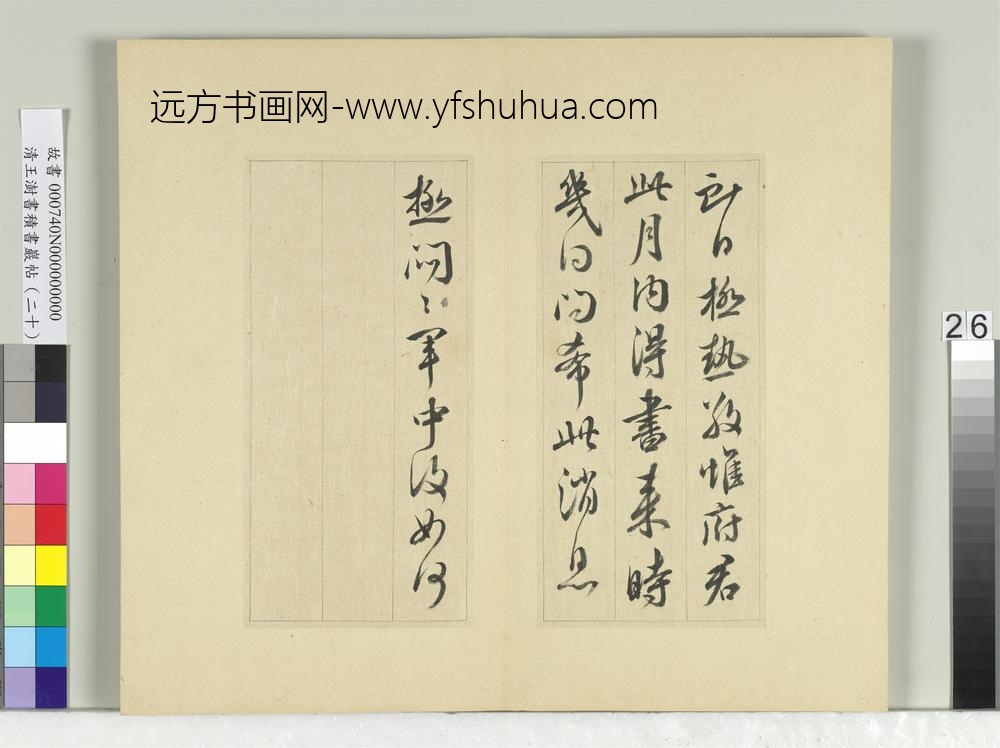 远方书画网-www.yfshuhua.com
日極熱敬惟府君
此月内得書来時
幾日問希此消息
極悶〻軍中復如何
故書 000740N000000000
清王澍書積書巖帖（二十）
26